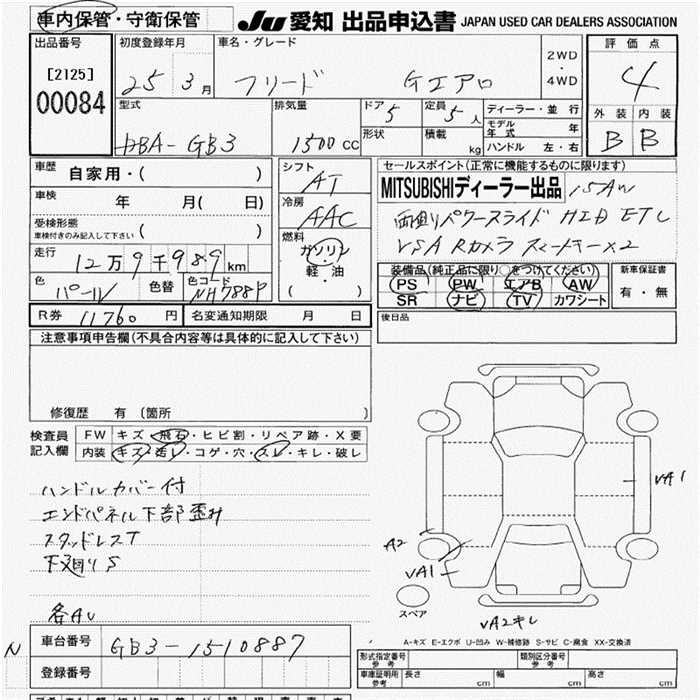 車内保管・守衛保管
JU 愛知 出品申込書 JAPAN USED CAR DEALERS ASSOCIATION
出品番号
[2125]
00084
初度登録年月
25 3月
車名・グレード
フリード Gエアロ
2WD
・
4WD
評価点
4
外装 内装
B B
型式
DBA-GB3
排気量
1500 CC
ドア
5
形状
定員
5人
積載
kg
ディーラー・並行
モデル年式 年
ハンドル 左・右
車歴
自家用・( )
車検
年 月( 日)
受検形態
車検付きのみ記入して下さい ( )
走行
12万9千989 km
色
パール
色替
色コード
NH788P
シフト
AT
冷房
AAC
燃料
ガソリン
軽・油
( )
セールスポイント(正常に機能するものに限ります)
MITSUBISHIディーラー出品 15AW
両側パワースライド HID ETC
VSA Rカメラ スマートキー×2
装備品(純正品に限り○をつけてください)
PS PW エアB AW
SR ナビ TV カワシート
新車保証書
有・無
R券 11760 円
名変通知期限 月 日
後日品
注意事項申告欄(不具合内容等は具体的に記入して下さい)
修復歴 有(箇所 )
検査員記入欄
FW キズ・飛石・ヒビ割・リペア跡・X要
内装 キズ・汚レ・コゲ・穴・スレ・キレ・破レ
ハンドルカバー付
エンドパネル下部歪み
スタッドレスT
下廻りS
各AU
VA1
A2
VA1
スペア
VA2キレ
A-キズ E-エクボ U-凹み W-補修跡 S-サビ C-腐食 XX-交換済
N
車台番号
GB3-1510887
登録番号
型式指定番号
参考
類別区分番号
参考
車庫証明用
参考
長さ cm 幅 cm 高さ cm